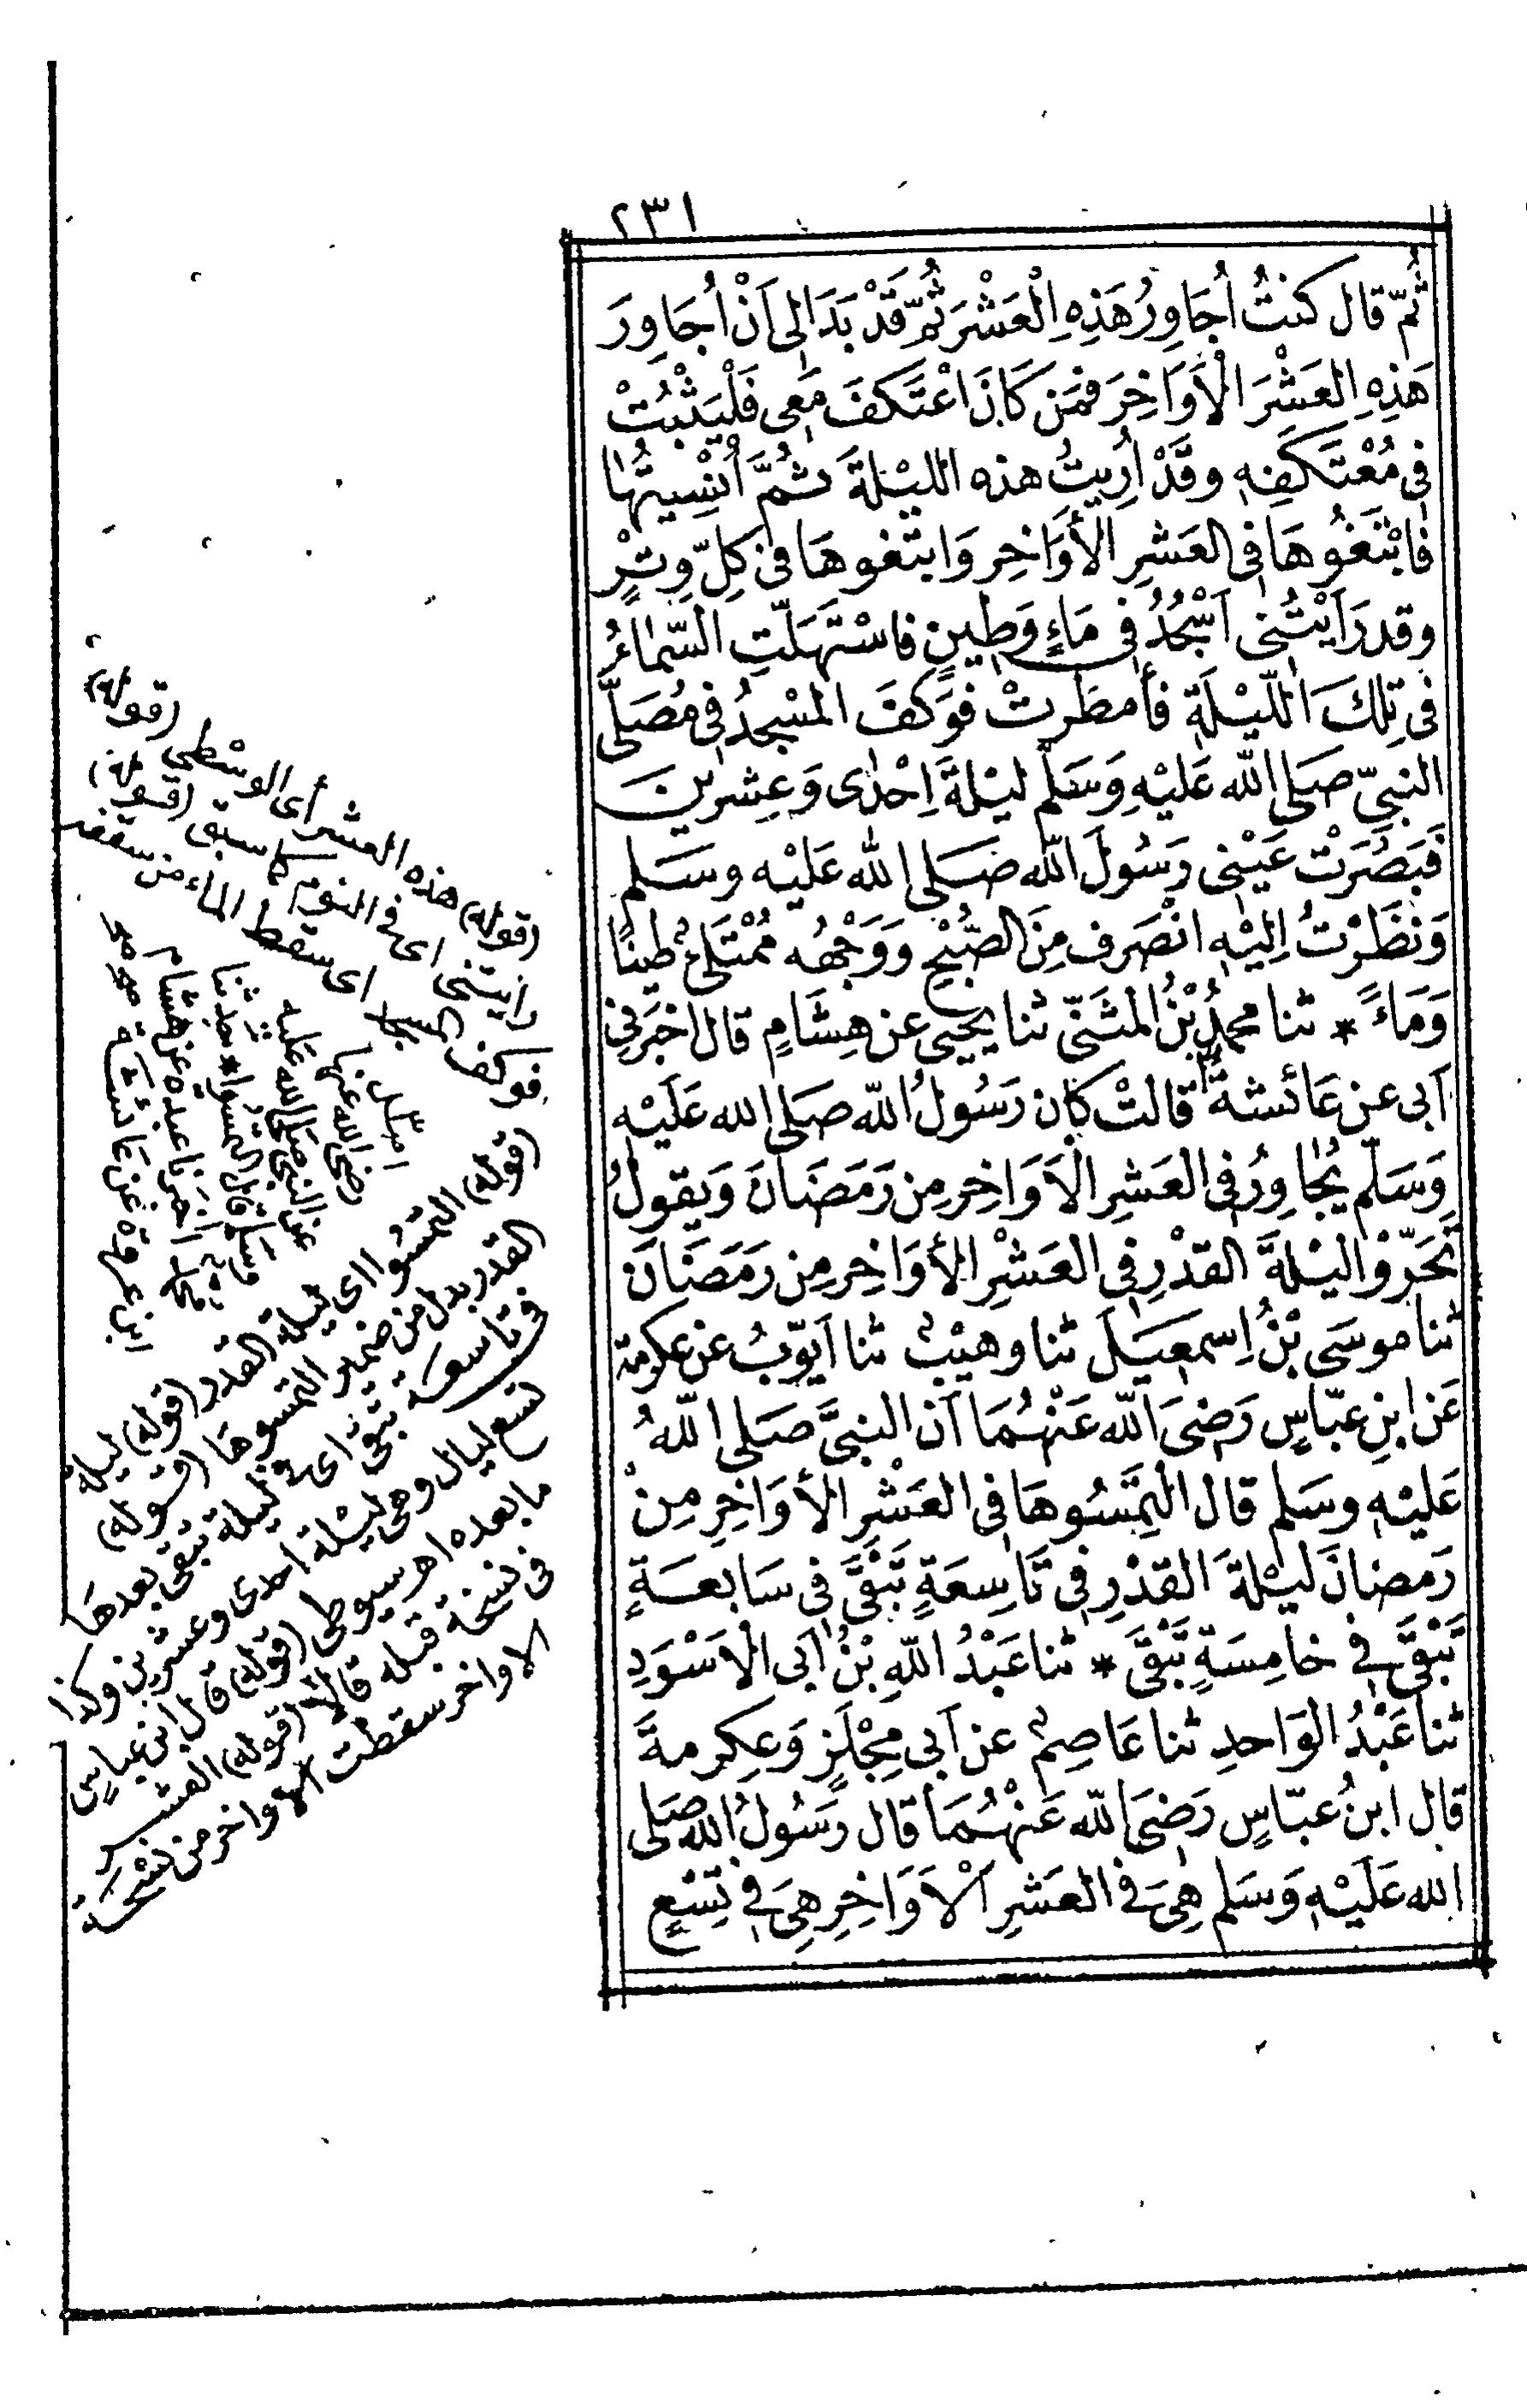 ٢٣١
ثُمّ قال كنتُ اُجَاوِرُ هَذِهِ الْعَشْرَ ثُمّ قَدْ بَدَا لِى اَنْ اُجَاوِرَ
هَذِهِ العَشْرَ الْاَوَاخِرَ فمَن كَانَ اعْتَكَفَ مَعِى فَلْيَثْبُتْ
فِى مُعْتَكَفِهِ وقَدْ اُرِيتُ هذه الليْلةَ ثُمَّ اُنْسِيتُهَا
فابْتَغُوهَا فِى العَشرِ الأوَاخِرِ وَابتَغوهَا فى كلِّ وِترٍ
وقد رَاَيْتُنِى اَسْجُدُ فِى مَاءٍ وَطِينٍ فاسْتَهَلّتِ السّمَاءُ
فى تِلكَ اللّيْلَةِ فأمطَرتْ فوَكفَ المسْجِدُ فِى مُصَلَّى
النبىِّ صَلى الله عَليْهِ وَسَلّم ليْلةَ اِحْدٰى وَعِشرِينَ
فَبَصُرَتْ عَيْنِى رَسُولَ الله صَلى الله عَليْه وسَلم
وَنَظَرْتُ اِليْهِ انْصَرف مِنَ الصّبْحِ وَوَجْهُه مُمْتَلِئٌ طينًا
وَمَاءً * ثنا محمدُ بْنُ المثَنّى ثنا يحْيى عن هِشَامٍ قال اخبَرَنِى
اَبى عن عَائشةَ قالتْ كان رَسُولُ الله صَلى الله عَلَيْهِ
وَسَلّم يُجاوِرُ فِى العَشرِ الْاَوَاخِرِ مِن رَمَضَانَ وَيقولُ
تحَرّوْا ليْلةَ القَدْرِ فِى العَشْرِ الأوَاخِرِ مِن رَمَضَانَ
ثنا موسَى بْنُ اِسمعِيلَ ثنا وهَيْبٌ ثنا اَيّوبُ عن عكرمة
عَن ابنِ عبّاسٍ رَضِىَ الله عَنْهُمَا اَن النبىَّ صَلى اللهُ
عَليْهِ وسَلم قال التَمِسُوهَا فِى العَشْرِ الأوَاخِرِ مِنْ
رَمضانَ ليْلةَ القدْرِ فِى تَاسِعَةٍ تَبْقَى فِى سَابعَةٍ
تَبْقَى فِى خامِسَةٍ تَبْقَى * ثنا عَبْدُ اللهِ بْنُ اَبى الْاَسْوَدِ
ثنا عَبْدُ الوَاحدِ ثنا عَاصِمٌ عن اَبى مِجْلَزٍ وَعِكرمةَ
قال ابنُ عبّاسٍ رَضِىَ الله عَنْهُمَا قال رَسُولُ الله صَلى
الله عَلَيْهِ وَسَلم هِىَ فى العَشرِ الْاَوَاخِرِ هِىَ فِى تِسْعٍ
(قوله) هذه العشر أى الوسْطى (قوله)
رايتنى اى فى النوم كما سبق (قوله)
فوكف المسجد اى سقط الماء من سقفه
رضى الله عنها
عن النبى صلى الله عليه
وسلم قال التمسوا * حدثنا
محمد اخبرنا عبدة عن هشام
ابن عروة عن عائشة
(قوله) التمسُوا اى ليلة القدر (قوله) ليلة
القدر بدل من ضمير التمسوها (قوله)
فى تاسعة تبقى اى فى ليلة تبقى بعدهَا
تسع ليال وهى ليْلة احدى وعشرين وكذا
ما بعده اهـ سيوطى (قوله) قال ابن عباسٍ
فى نسخة قبله قالا (قوله) العشر
الاواخر سقطت الاواخر من نسْخة